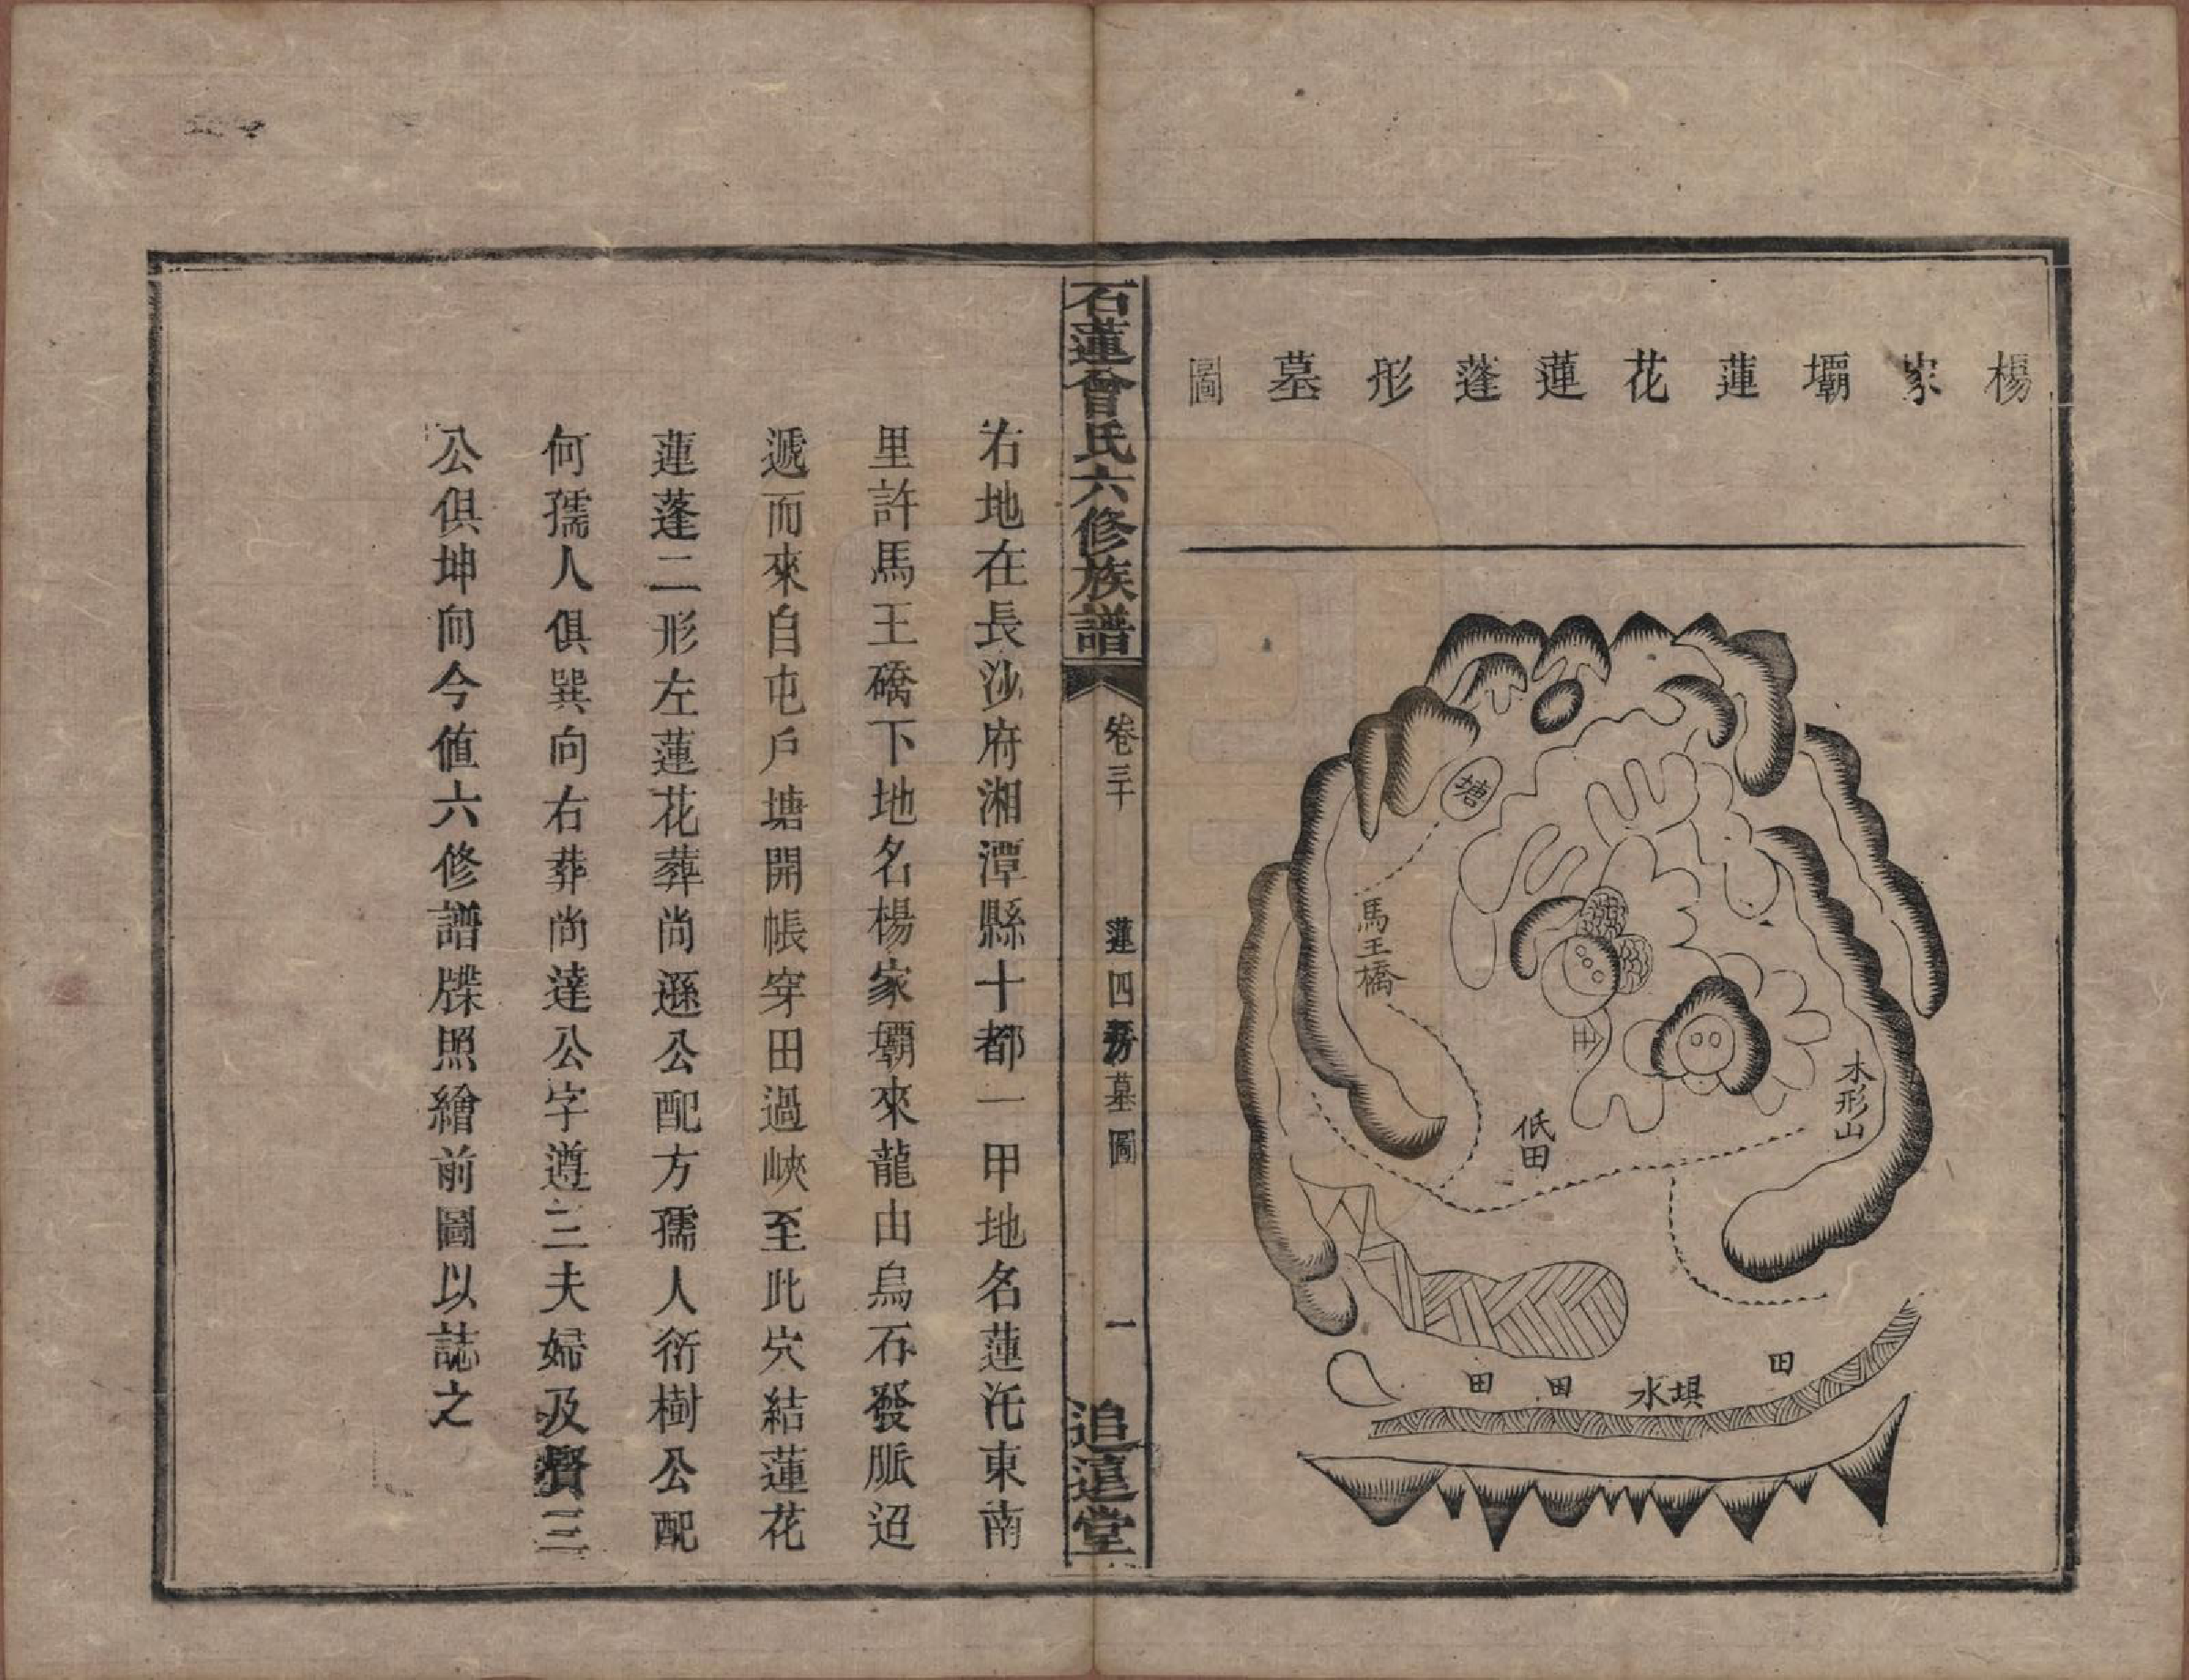 楊家壩蓮花蓮蓬形墓圖
塘
馬王橋
木形山
低田
田
水垻
田
田
石蓮曾氏六修族譜
卷三十
蓮四房墓圖
一
追遠堂
右地在長沙府湘潭縣十都一甲地名蓮汑東南
里許馬王礄下地名楊家壩來龍由烏石發脈迢
遞而來自屯戶塘開帳穿田過峽至此穴結蓮花
蓮蓬二形左蓮花葬尚遜公配方孺人衍樹公配
何孺人俱巽向右葬尚達公字遵三夫婦及賢三
公俱坤向今值六修譜牒照繪前圖以誌之